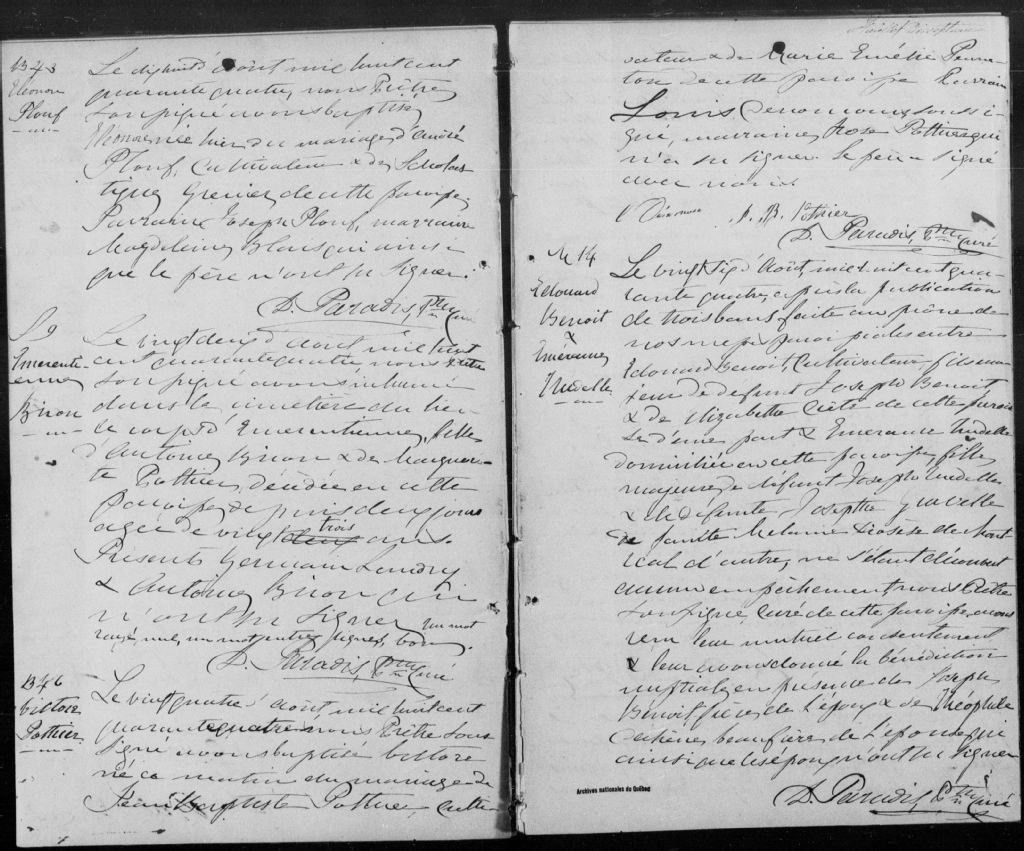 B43
Eléonore
Plouf
Le dixhuit d'août mil huit cent
quarante quatre, nous Prêtre
soussigné avons baptisé
Eléonore née hier du mariage d'André
Plouf, Cultivateur & de Scholas-
tique Grenier de cette paroisse.
Parrain Joseph Plouf, marraine
Magdeleine Blais qui ainsi
que le père n'ont su signer.
D. Paradis Ptre Curé
S9
Emerenti-
enne
Brion
Le vingt deux d'août mil huit
cent quarante quatre, nous Prêtre
soussigné avons inhumé
dans le cimetière du lieu
le corps d'Emerentienne, fille
d'Antoine Brion & de Margueri-
te Pothier, décédée en cette
paroisse depuis deux jours
agée de vingt deux trois ans.
Présents Germain Landry
& Antoine Brion qui
n'ont su signer. Un mot
rayé nul, un mot entre lignes, bon.
D. Paradis Ptre Curé
B46
Victore
Pothier
Le vingt quatre d'août mil huit cent
quarante quatre nous Prêtre sous-
signé avons baptisé Victore
né ce matin du mariage de
Jean Baptiste Pothier, culti-
vateur & de Marie Emélie
de cette paroisse Parrain
Louis Dénoncour soussi-
gné, marraine Rose Pothier qui
n'a su signer. Le père a signé
avec nous.
J. B. Pothier
D. Paradis Ptre Curé
M 14
Edouard
Benoit
&
Emerance
Trudelle
Le vingt six d'Août, mil huit cent qua-
rante quatre, après la publication
de trois bans faite au prône de
nos messes paroissiales entre
Edouard Benoit, Cultivateur, fils ma-
jeur de défunt Joseph Benoit
& de Elizabette Côté de cette parois-
se d'une part & Emerance Trudelle
domiciliée en cette paroisse, fille
majeure de défunt Joseph Trudelle
& de défunte Josephte Gravelle
de Mont
réal d'autre, ne s'étant découvert
aucun empêchement nous Prêtre
soussigné, Curé de cette paroisse, avons
reçu leur mutuel consentement
& leur avons donné la bénédiction
nuptiale en présence de Joseph
Benoit, frère de l'époux & de Théophile
beaufrère de l'épouse qui
ainsi que les époux n'ont su signer
D. Paradis Ptre Curé
Archives nationales du Québec